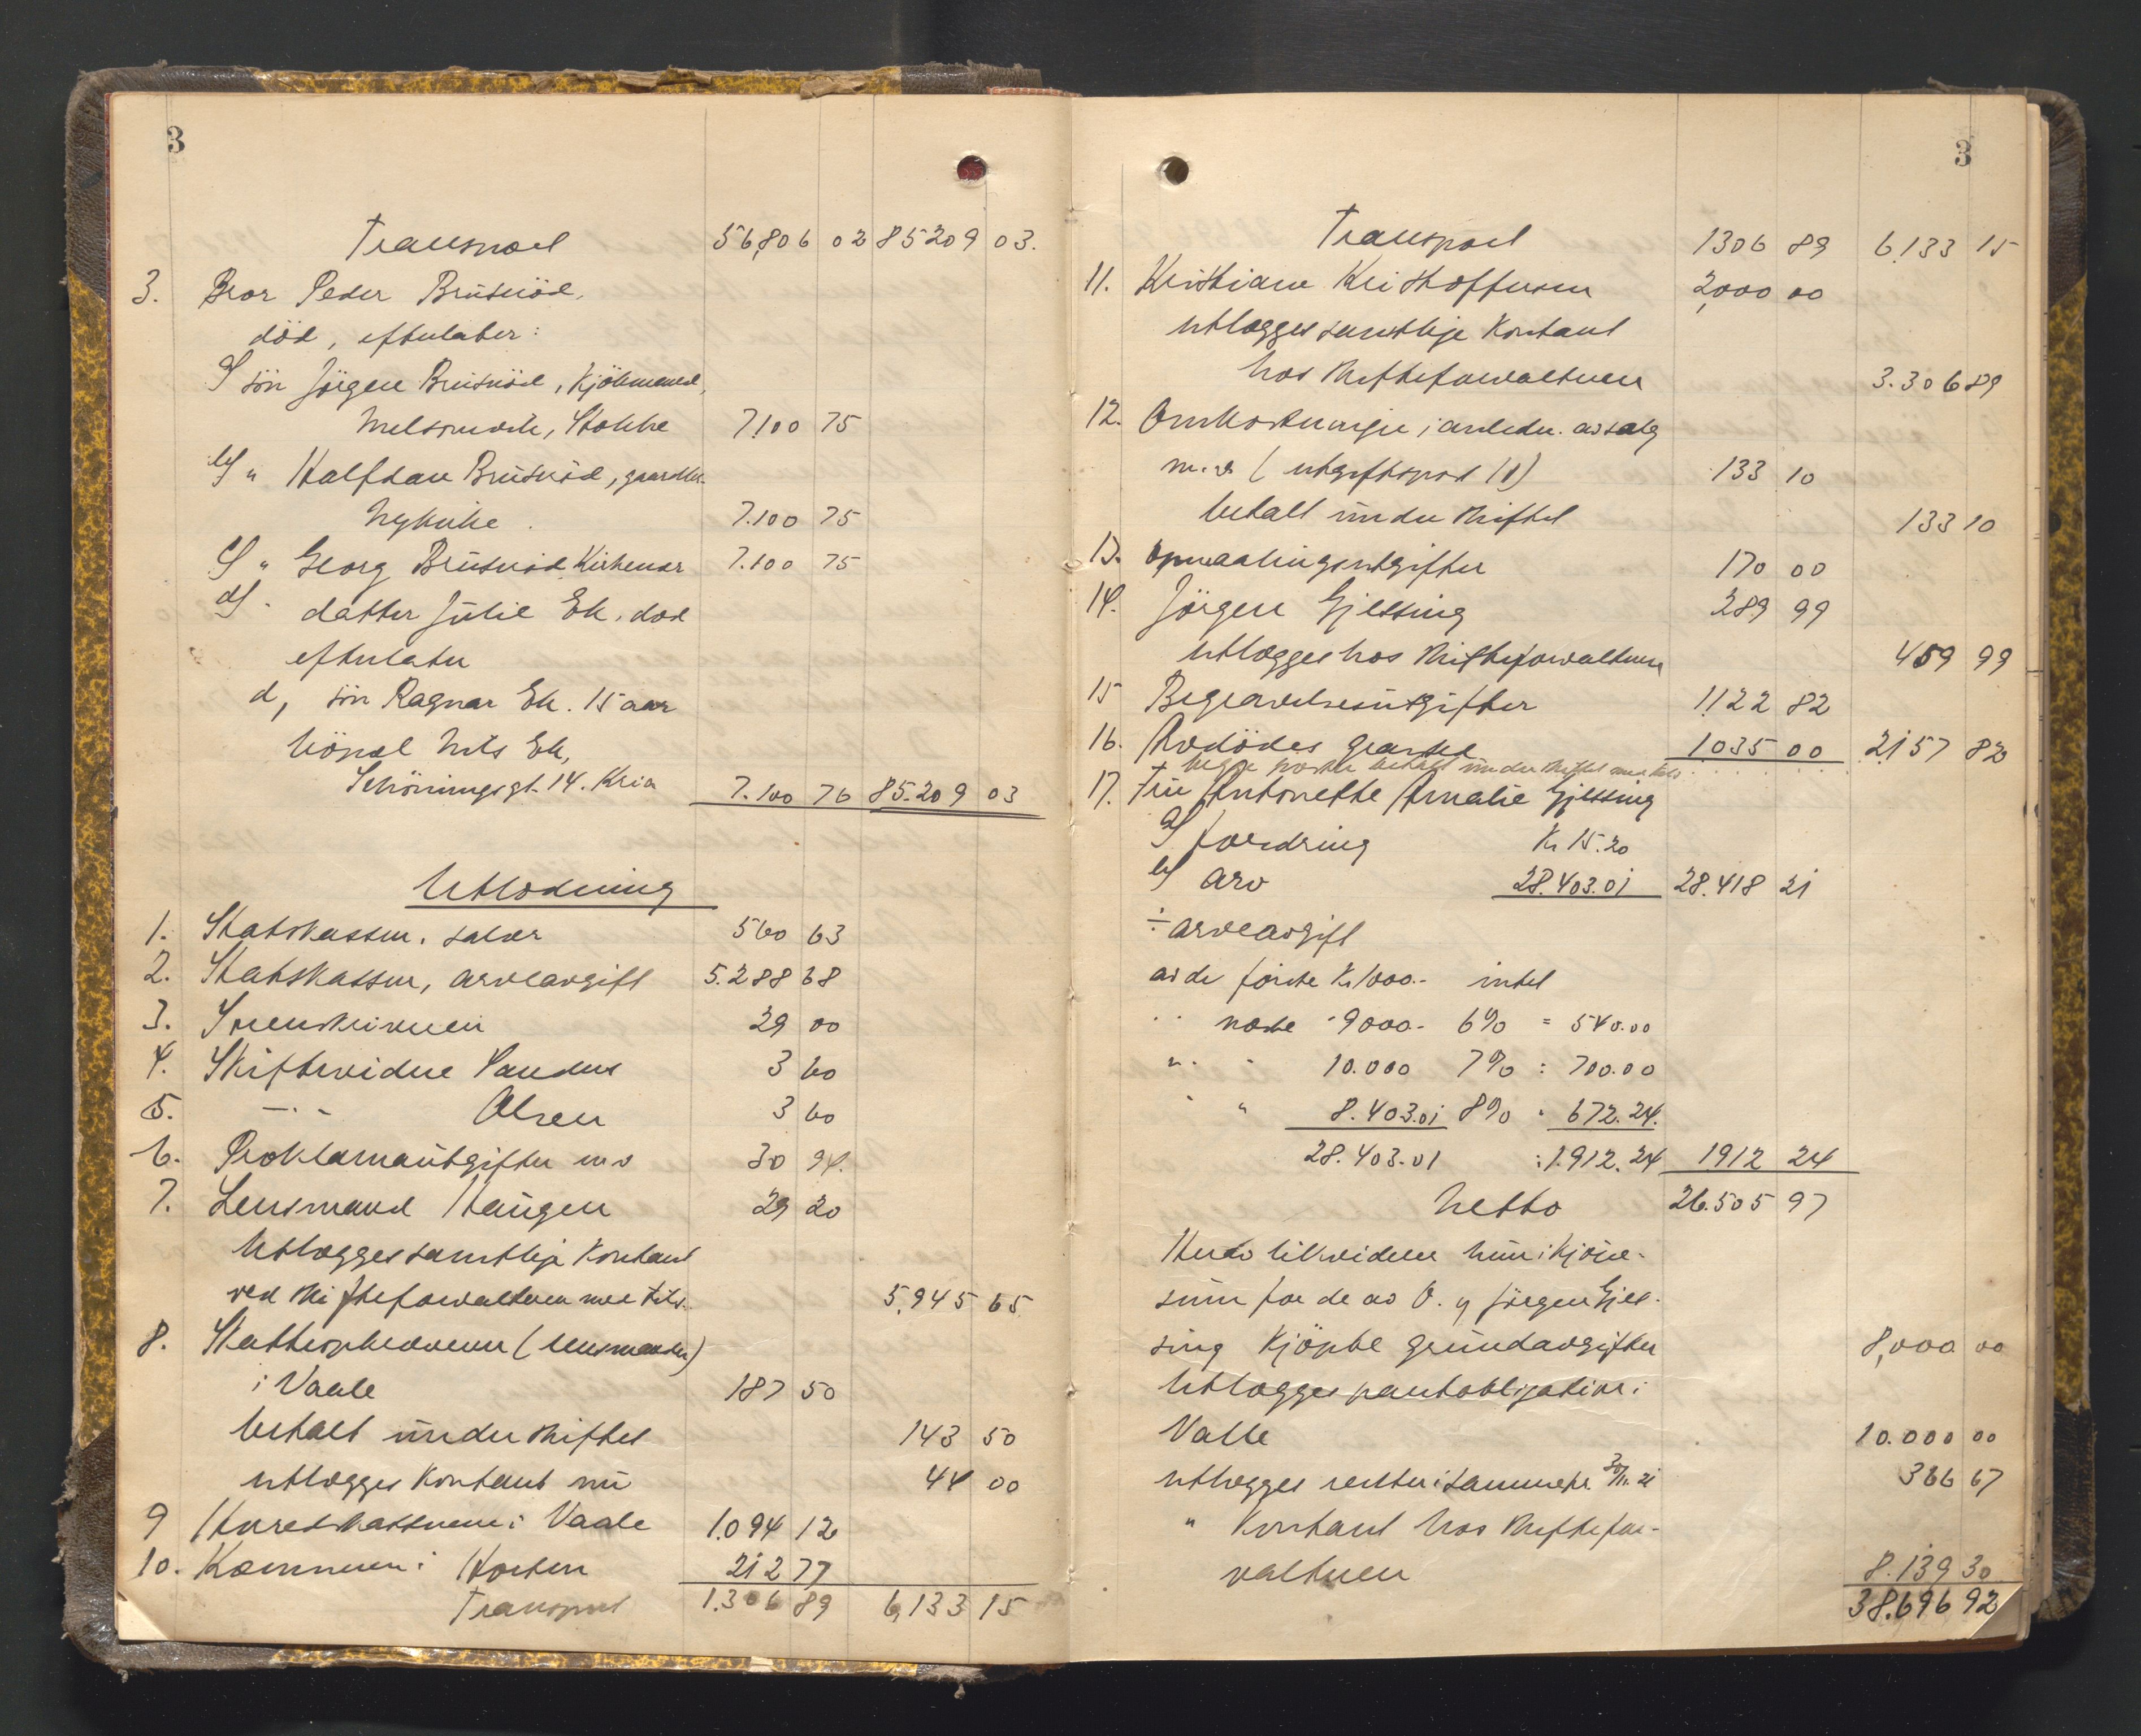 3
Transport 56,806 02 85209 03.
3. Bror Peder Brusnöd,
död, efterlater:
a/ sön Jörgen Brusnöd, Kjöbmand,
Melsomvik, Stokke 7.100 75
b/ " Halfdan Brusnöd, gaardbr.
Nykirke. 7.100 75
c/ " Georg Brusnöd Kirkenær 7.100 75
d/ datter Julie Ek, död
efterlater
d, sön Ragnar Ek. 15 aar
Nils Ek,
Schöningsgt. 14. Kria 7.100 76 85.209 03
Utlodning
1. Statskassen, salær 560 63
2. Statskassen, arveavgift 5.288 68
3. Sorenskriveren 29 00
4. Skiftevidne 3 60
5. —"— Olsen 3 60
6. Proklamautgifter m.v 30 94.
7. Lensmand Haugen 29 20
Utlægges samtlige Kontant
ved skifteforvalteren 5.945 65
8. Skatteopkræveren (lensmanden)
i Vaale 187 50
betalt under skiftet 143 50
utlægges Kontant nu 44 00
9 Herredskasseren i Vaale 1.094 12
10. Kæmneren i Horten 212 77
Transport 1.306 89 6,133 15
3
Transport 1306 89 6.133 15
11. Kristiane Kristoffersen 2,000 00
utlægges samtlige Kontant
hos skifteforvalteren 3.306 89
12. Omkostninger i anledn. av salg
m.v (utgiftspost 11) 133 10
betalt under skiftet 133 10
13. Opmaalingsutgifter 170 00
14. Jörgen Gjessing 289 99
utlægges hos skifteforvalteren 459 99
15 Begravelsesutgifter 1122 82
16. Avdödes gravsted 1.035 00 2157 82
begge poster betalt under skiftet
17. Fru Antonette Amalie Gjessing
a/ fordring Kr 15.20
b/ arv 28.403.01 28.418 21
÷ arveavgift
av de förste Kr 1000.- intet
" næste " 9000.- 6% = 540.00
" " 10.000 7% = 700.00
" " 8.403.01 8% " 672.24.
28.403.01 = 1.912.24 1912 24
Netto 26.505 97
Herav likviderer hun i kjöpe-
sum for de av O. og Jörgen Gjes-
sing Kjöpte grundavgifter 8,000 00
Utlægges pantobligation i
Valle 10.000 00
utlægges renter i samme pr. 30/11. 21 366 67
" Kontant hos skiftefor-
valteren 8.139 30
38.696 92